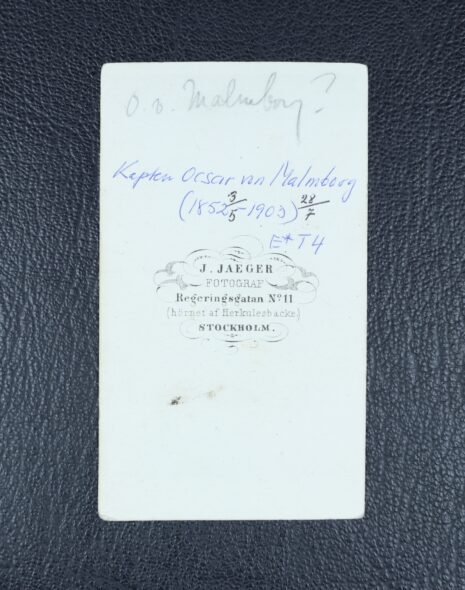 O. v. Malmborg?
Kapten Ocscar von Malmborg
(1852 3/5 - 1903) 28/7
E*T4
J. JAEGER
FOTOGRAF
Regeringsgatan Nº 11
(hörnet af Herkulesbacke)
STOCKHOLM.